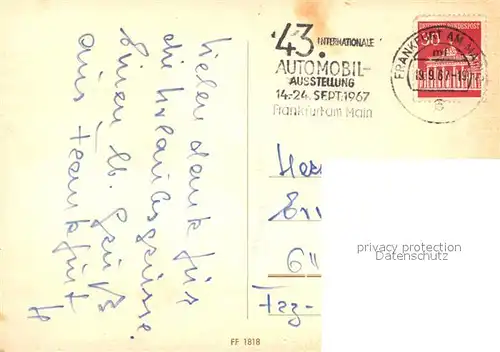 Vielen dank für
die Urlaubsgrüsse.
Einen lb. Gruß
aus Frankfurt
43. INTERNATIONALE
AUTOMOBIL-
AUSSTELLUNG
14.-24. SEPT. 1967
Frankfurt am Main
FRANKFURT AM MAIN
-19.9.67-19
6
30
BUNDESPOST
Her
privacy protection
Datenschutz
FF 1818